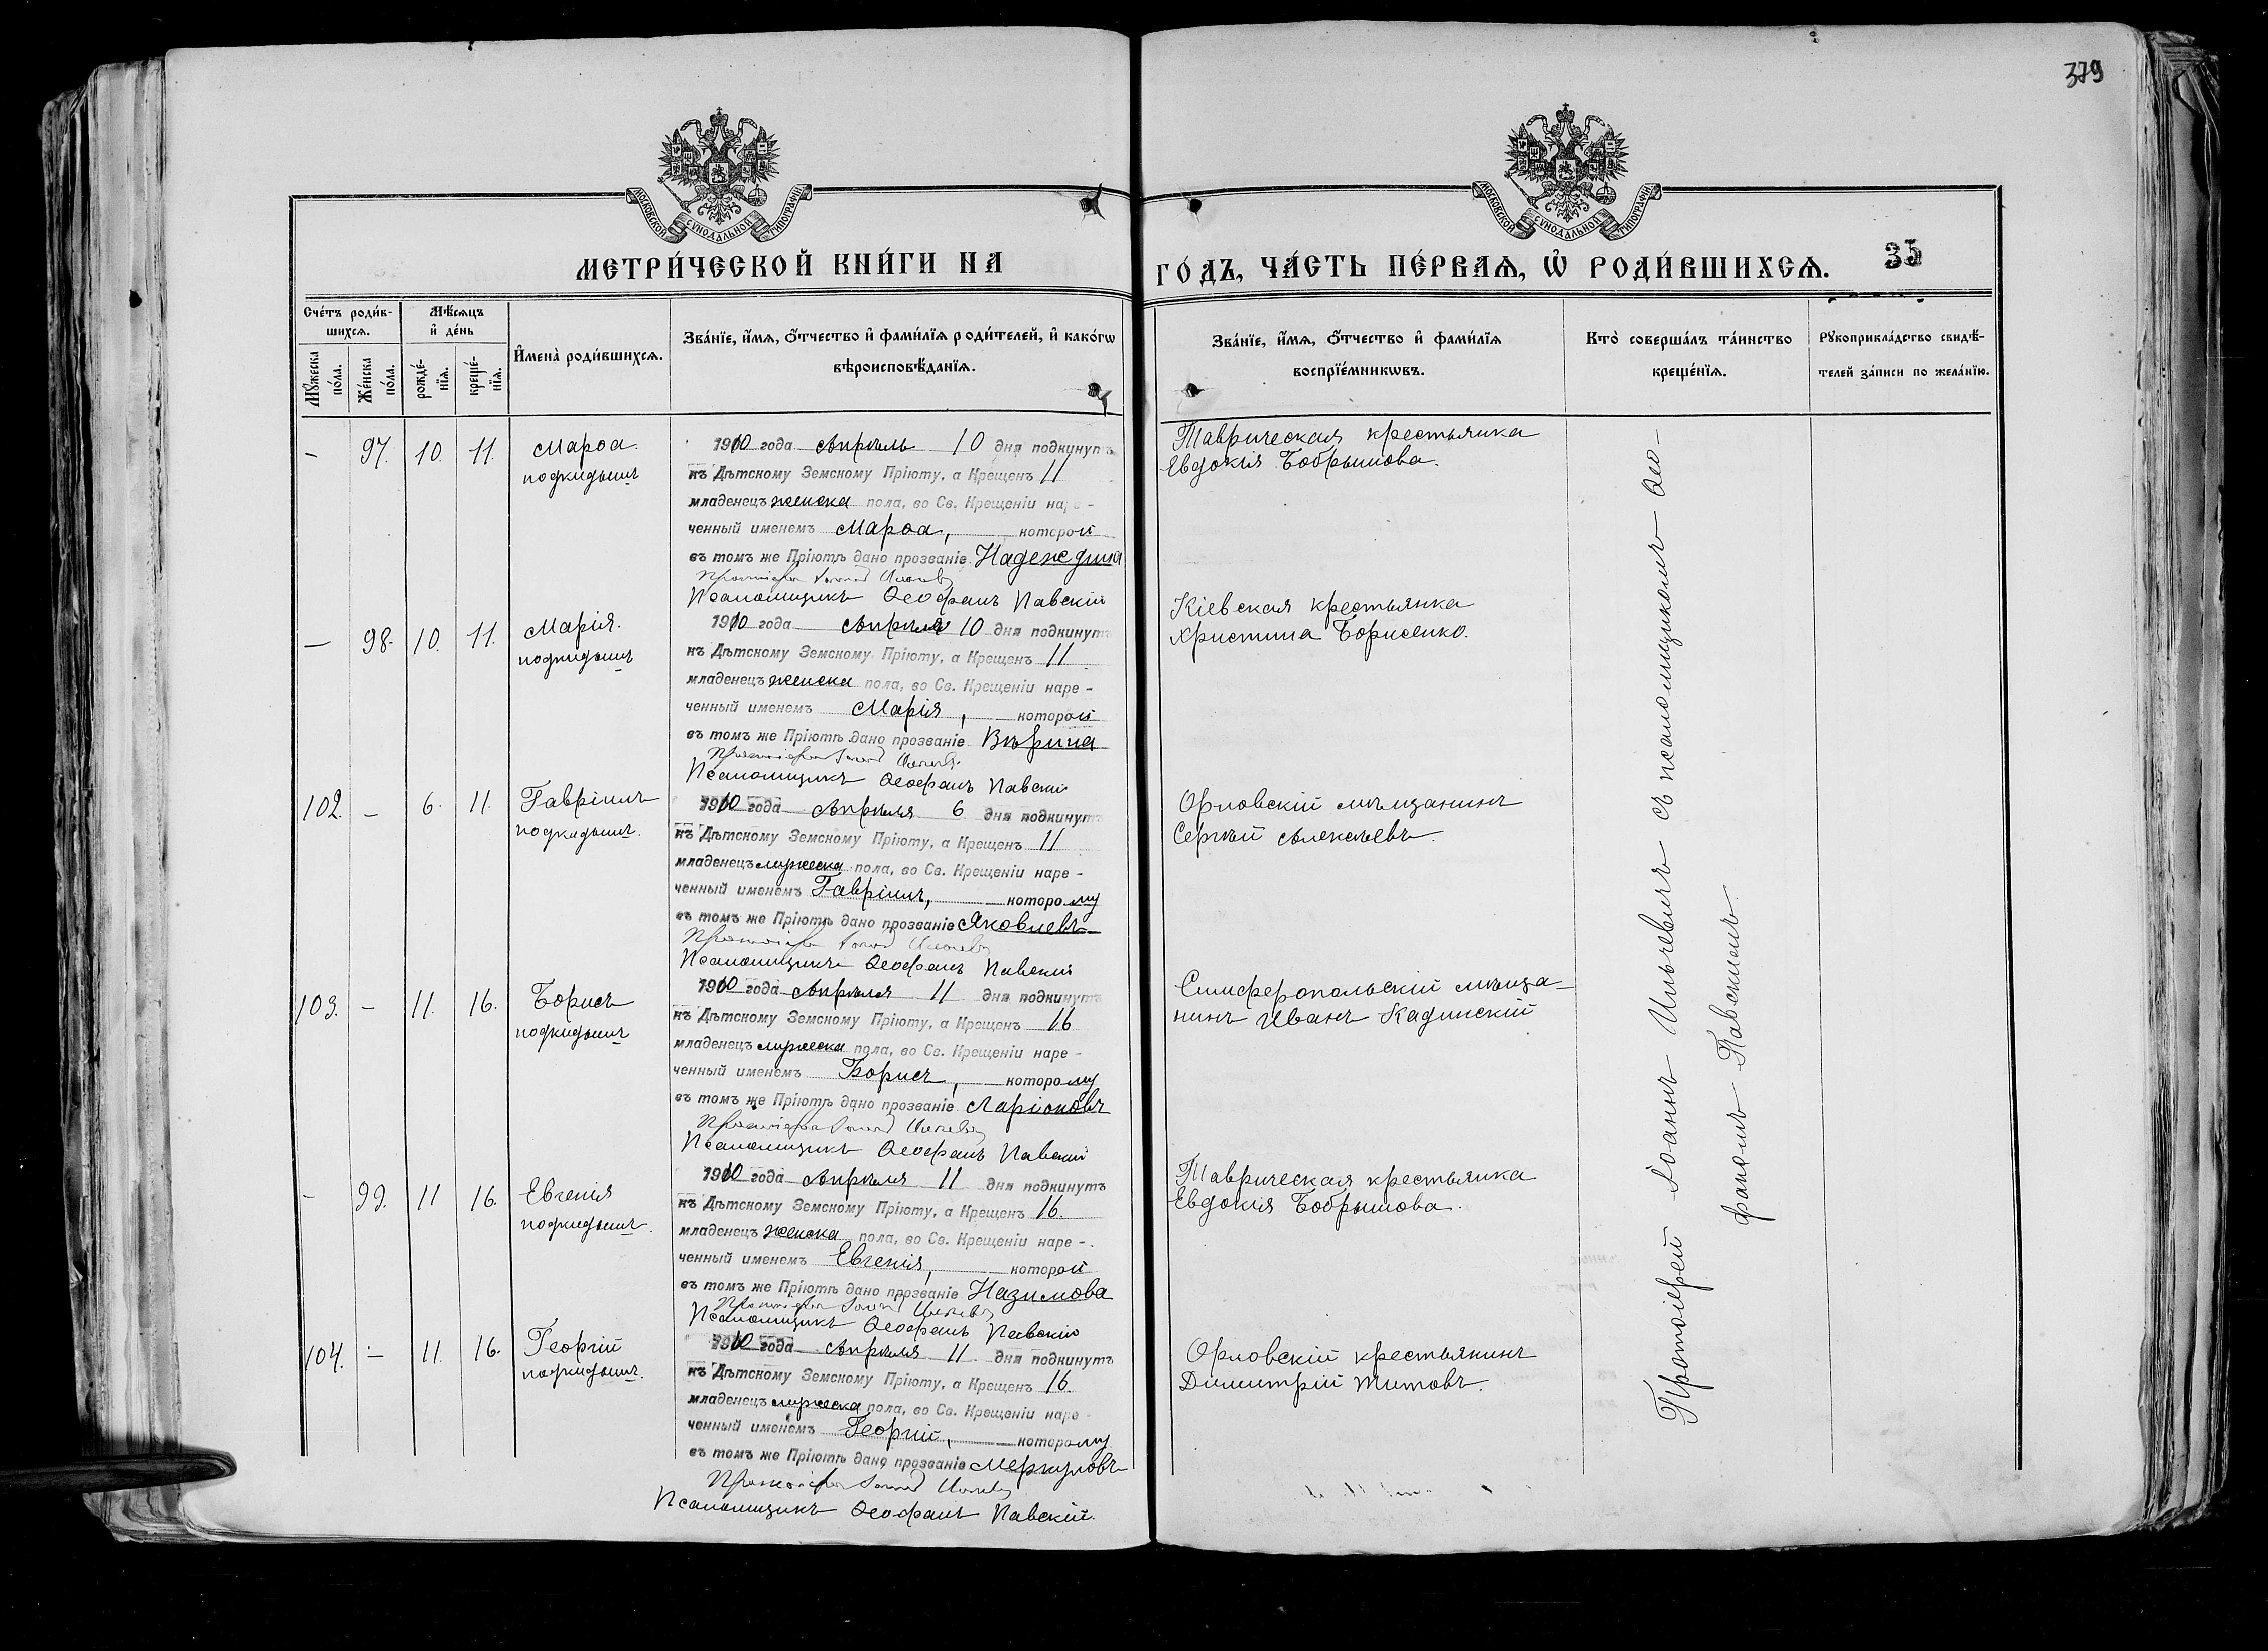 379
МОСКОВСКОЙ СѴНОДАЛЬНОЙ ТИПОГРАФІИ
МОСКОВСКОЙ СѴНОДАЛЬНОЙ ТИПОГРАФІИ
МЕТРИ́ЧЕСКОЙ КНИ́ГИ НА
ГО́ДЪ, ЧА́СТЬ ПЕ́РВАЯ, Ѡ҆ РОДИ́ВШИХСЯ. 35
Сче́тъ роди́в-
шихсѧ.
Мꙋ́жеска по́ла.
Же́нска по́ла.
Мѣ́сѧцъ
и҆ де́нь
рожде́-
нїѧ.
креще́-
нїѧ.
И҆мена̀ роди́вшихсѧ.
Зва́нїе, и҆́мѧ, ѻ҆́тчество и҆ фами́лїѧ роди́телей, и҆ како́гѡ
вѣроисповѣ́данїѧ.
Зва́нїе, и҆́мѧ, ѻ҆́тчество и҆ фами́лїѧ
воспрїе́мникѡвъ.
Кто̀ соверша́лъ та́инство
креще́нїѧ.
Рꙋкоприкла́дство свидѣ́-
телей за́писи по жела́нїю.
- 97. 10. 11. Марѳа.
подкидышъ
1910 года Апрѣль 10 дня подкинутъ
къ Дѣтскому Земскому Пріюту, а Крещенъ 11
младенецъ женска пола, во Св. Крещеніи наре-
ченный именемъ Марѳа, которой
въ томъ же Пріютѣ дано прозваніе Надеждина
Протоіерей Іоаннъ
Псаломщикъ Ѳеофанъ Павскій
Таврическая крестьянка
Евдокія Бобрышова.
— 98. 10. 11. Марія.
подкидышъ
1910 года Апрѣля 10 дня подкинутъ
къ Дѣтскому Земскому Пріюту, а Крещенъ 11
младенецъ женска пола, во Св. Крещеніи наре-
ченный именемъ Марія, которой
въ томъ же Пріютѣ дано прозваніе Вѣрина
Протоіерей Іоаннъ
Псаломщикъ Ѳеофанъ Павскій
Кіевская крестьянка
Христина Борисенко.
102. - 6. 11. Гавріилъ
подкидышъ.
1910 года Апрѣля 6 дня подкинутъ
къ Дѣтскому Земскому Пріюту, а Крещенъ 11
младенецъ мужеска пола, во Св. Крещеніи наре-
ченный именемъ Гавріилъ, которому
въ томъ же Пріютѣ дано прозваніе Яковлевъ
Протоіерей Іоаннъ
Псаломщикъ Ѳеофанъ Павскій
Орловскій мѣщанинъ
Сергѣй Алексѣевъ.
103. - 11. 16. Борисъ
подкидышъ
1910 года Апрѣля 11 дня подкинутъ
къ Дѣтскому Земскому Пріюту, а Крещенъ 16
младенецъ мужеска пола, во Св. Крещеніи наре-
ченный именемъ Борисъ, которому
въ томъ же Пріютѣ дано прозваніе Ларіоновъ
Протоіерей Іоаннъ
Псаломщикъ Ѳеофанъ Павскій
Симферопольскій мѣща-
нинъ Иванъ Кадинскій
- 99. 11 16. Евгенія
подкидышъ.
1910 года Апрѣля 11 дня подкинутъ
къ Дѣтскому Земскому Пріюту, а Крещенъ 16.
младенецъ женска пола, во Св. Крещеніи наре-
ченный именемъ Евгенія, которой
въ томъ же Пріютѣ дано прозваніе Назимова
Протоіерей Іоаннъ
Псаломщикъ Ѳеофанъ Павскій
Таврическая крестьянка
Евдокія Бобрышова.
104. - 11. 16. Георгій
подкидышъ.
1910 года Апрѣля 11 дня подкинутъ
къ Дѣтскому Земскому Пріюту, а Крещенъ 16.
младенецъ мужеска пола, во Св. Крещеніи наре-
ченный именемъ Георгій, которому
въ томъ же Пріютѣ дано прозваніе Меркуловъ
Протоіерей Іоаннъ
Псаломщикъ Ѳеофанъ Павскій.
Орловскій крестьянинъ
Димитрій Титовъ.
Протоіерей Іоаннъ Ильчевичъ съ псаломщикомъ Ѳео-
фаномъ Павскимъ.